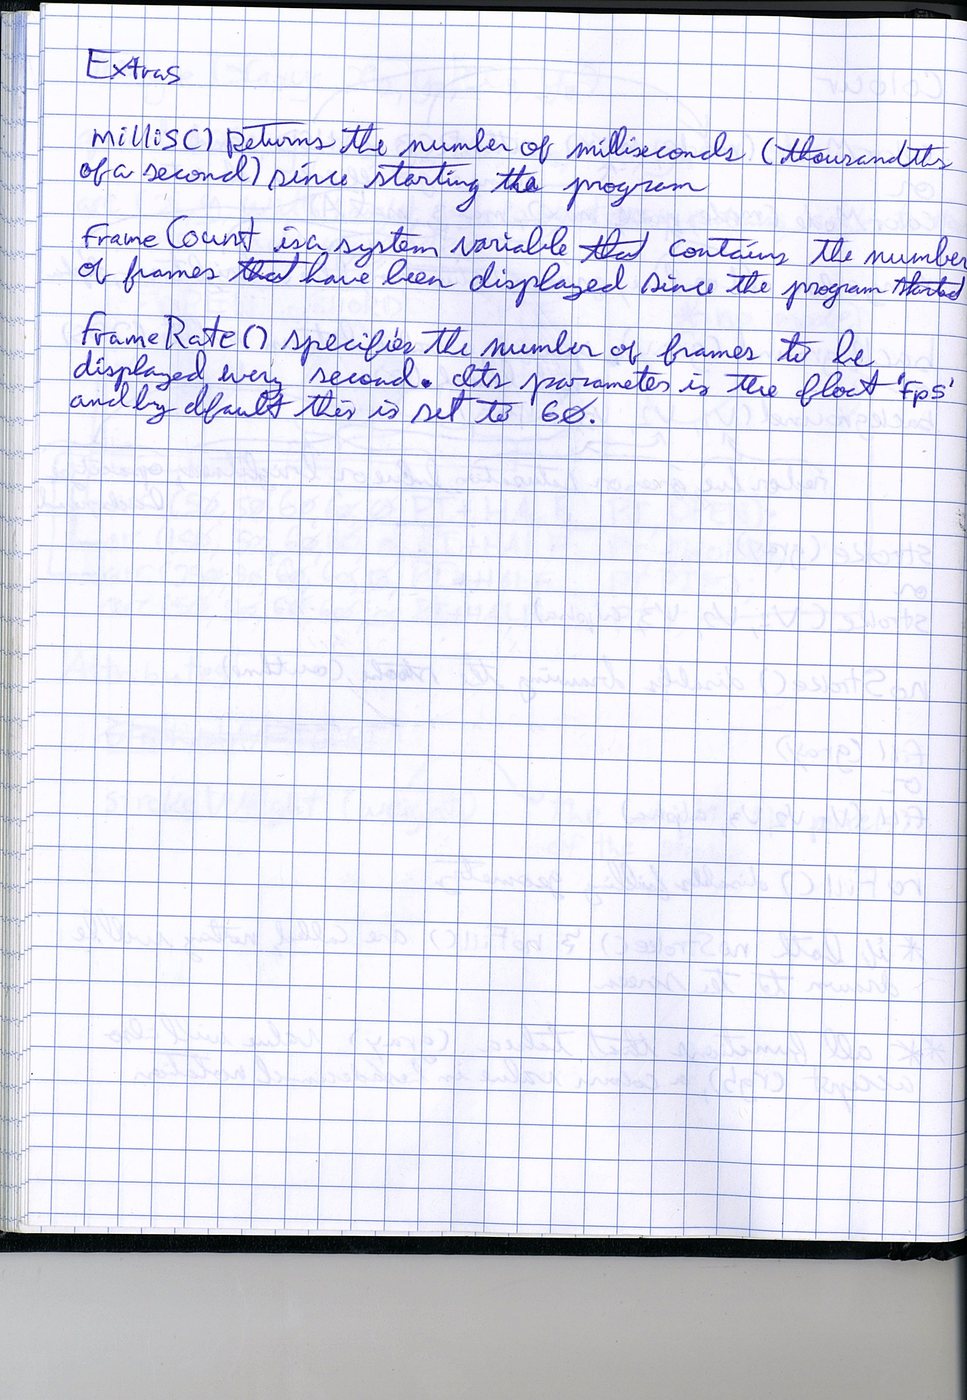 Extras
millis() Returns the number of milliseconds (thousandths
of a second) since starting the program
frameCount is a system variable that contains the number
of frames that have been displayed since the program started
frameRate() specifies the number of frames to be
displayed every second. Its parameter is the float 'fps'
and by dfault this is set to 60.